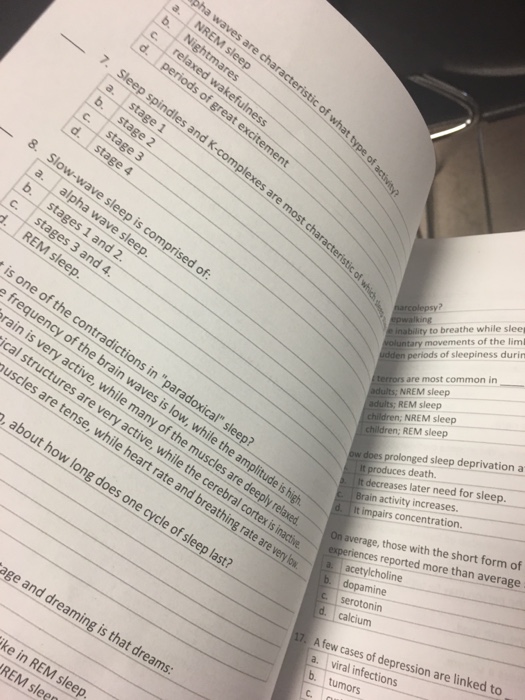 pha waves are characteristic of what type of activity?
a. NREM sleep
b. Nightmares
c. relaxed wakefulness
d. periods of great excitement
7. Sleep spindles and K-complexes are most characteristic of which
a. stage 1
b. stage 2
c. stage 3
d. stage 4
8. Slow-wave sleep is comprised of:
a. alpha wave sleep.
b. stages 1 and 2.
c. stages 3 and 4.
d. REM sleep.
is one of the contradictions in "paradoxical" sleep?
frequency of the brain waves is low, while the amplitude is high.
rain is very active, while many of the muscles are deeply relaxed.
ical structures are very active, while the cerebral cortex is inactive.
uscles are tense, while heart rate and breathing rate are very low.
, about how long does one cycle of sleep last?
age and dreaming is that dreams:
ike in REM sleep.
REM sleep
narcolepsy?
epwalking
inability to breathe while sleep
voluntary movements of the limb
udden periods of sleepiness durin
terrors are most common in
adults; NREM sleep
adults; REM sleep
children; NREM sleep
children; REM sleep
ow does prolonged sleep deprivation a
It produces death.
It decreases later need for sleep.
c. Brain activity increases.
d. It impairs concentration.
On average, those with the short form of
experiences reported more than average
a. acetylcholine
b. dopamine
c. serotonin
d. calcium
17. A few cases of depression are linked to
a. viral infections
b. tumors
c.